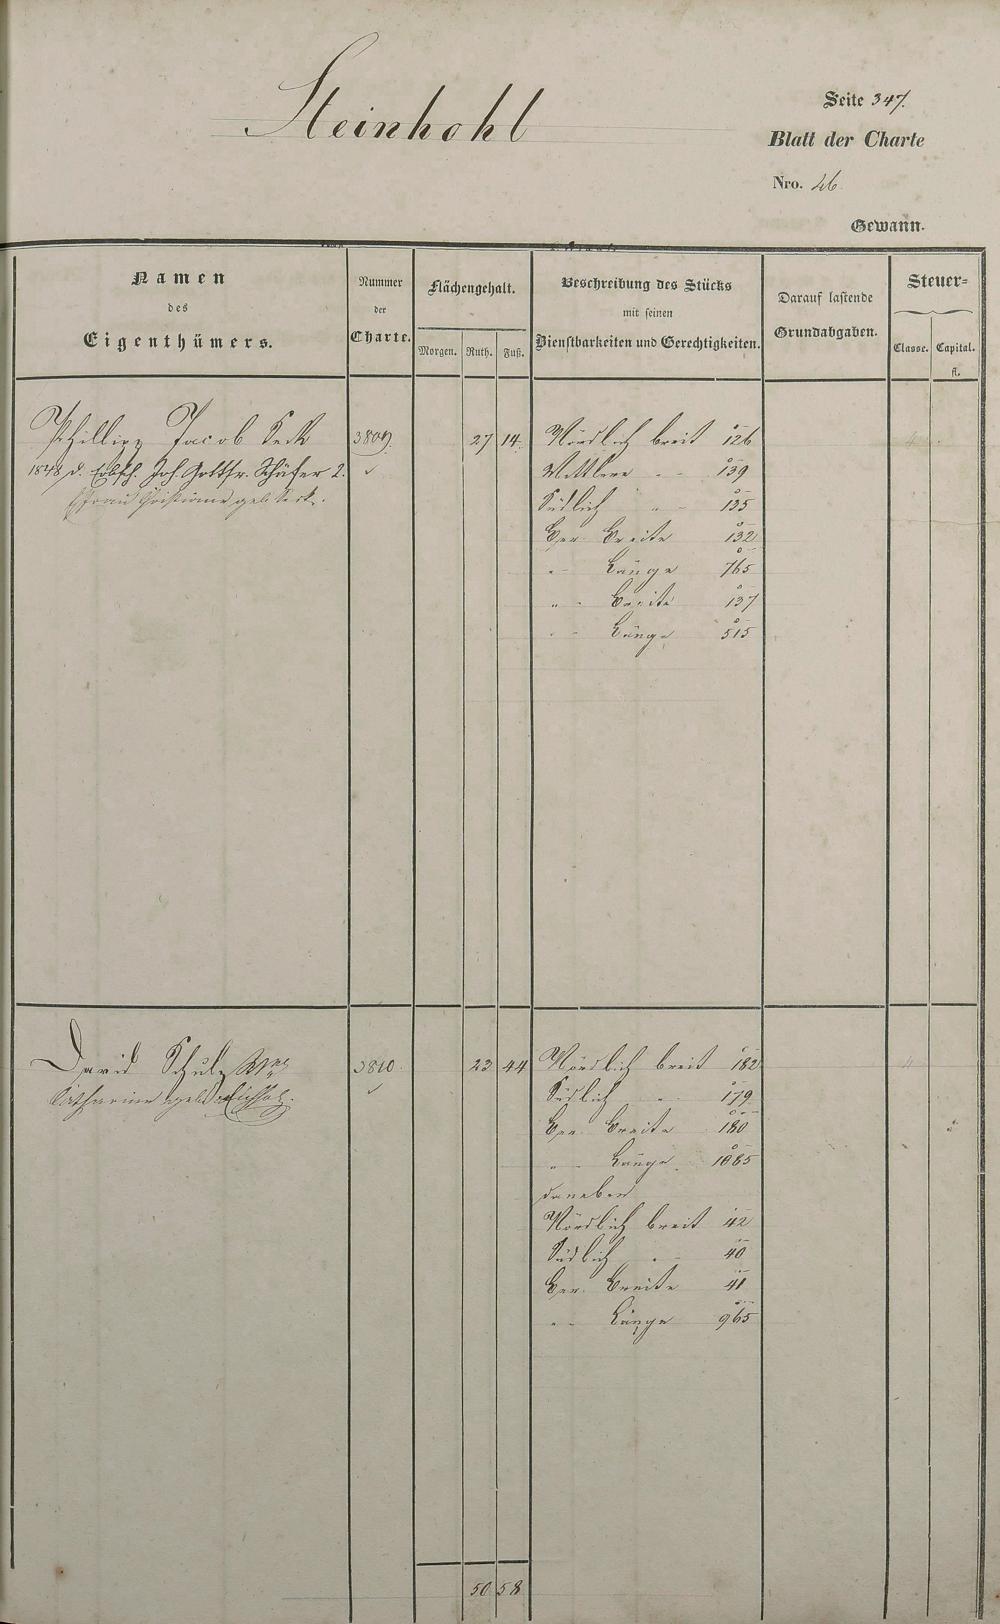 Steinhohl
Seite 347.
Blatt der Charte
Nro. 46.
Gewann.
Namen
des
Eigenthümers.
Nummer
der
Charte.
Flächengehalt.
Morgen. Ruth. Fuß.
Beschreibung des Stücks
mit seinen
Dienstbarkeiten und Gerechtigkeiten.
Darauf lastende
Grundabgaben.
Steuer-
Classe. Capital.
fl.
Phillipp Jacob Seck 3809. 27 14. Nördlich breit 126
1848 d. Erbsch. Joh. Gottfr. Schäfer 2. Mittlere " 139
Ehefrau Christiane geb. Seck. Südlich " 135
Ger. Breite 132
" Länge 765
" Breite 137
" Länge 515
David Schulz 3810. 23 44 Nördlich breit 182
Katharine geb. Südlich " 179
Ger. Breite 180
" Länge 1085
daneben
Nördlich breit 42
Südlich " 40
Ger. Breite 41
" Länge 965
50 58